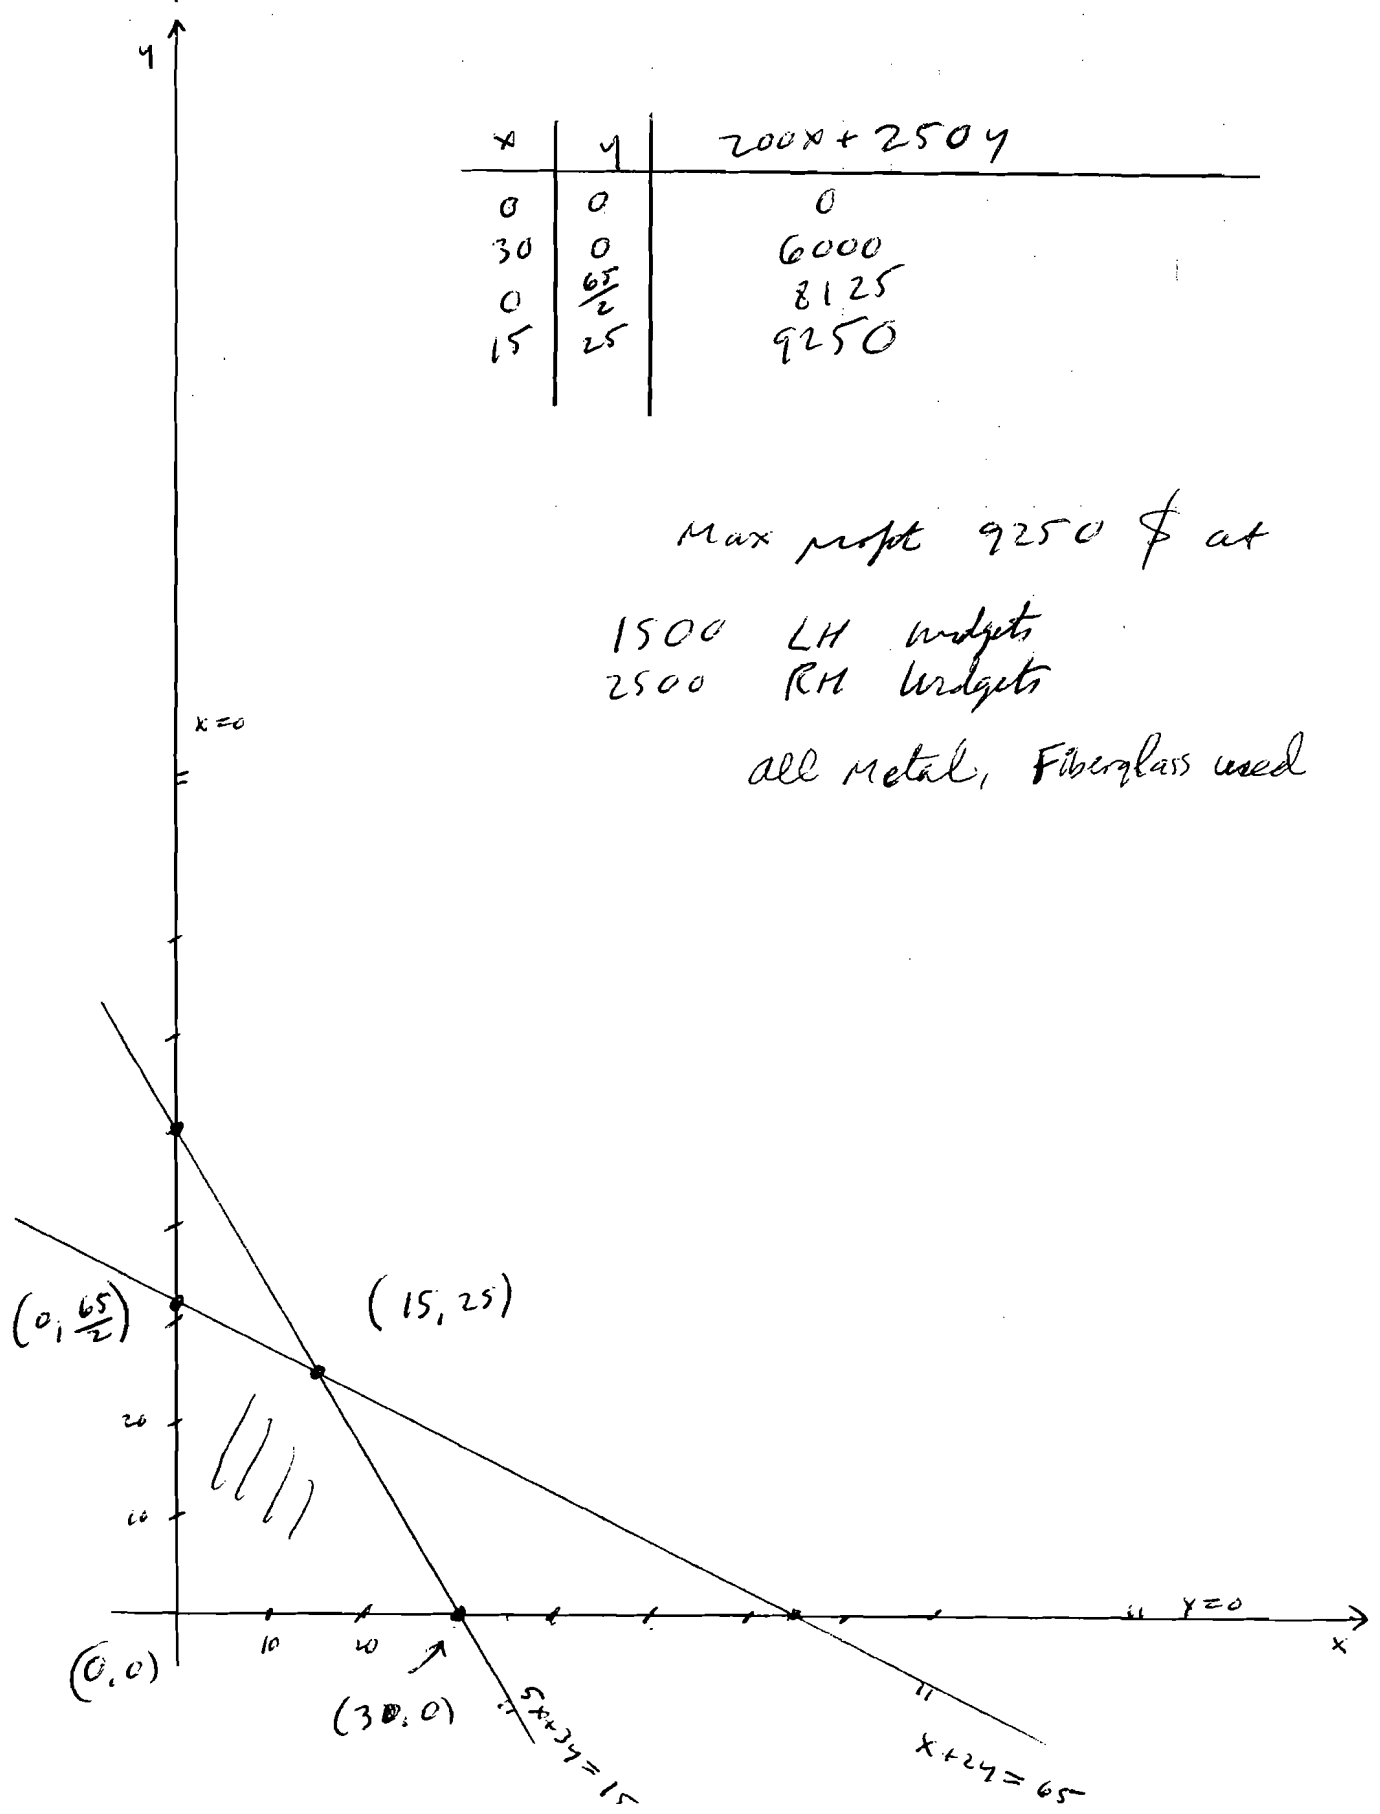 y
x y 200x + 250y
0 0 0
30 0 6000
0 65/2 8125
15 25 9250
Max profit 9250 $ at
1500 LH widgets
2500 RH widgets
x=0
all Metal, Fiberglass used
(0, 65/2)
(15, 25)
20
10
y=0
10 20
x
(0,0)
(30,0)
5x+3y=15
x+2y=65